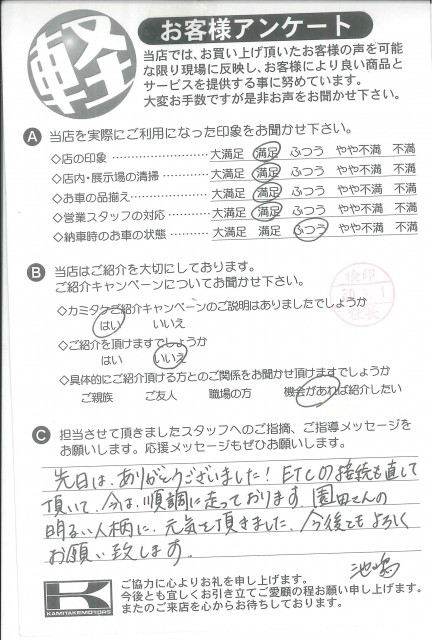 軽
お客様アンケート
当店では、お買い上げ頂いたお客様の声を可能
な限り現場に反映し、お客様により良い商品と
サービスを提供する事に努めています。
大変お手数ですが是非お声をお聞かせ下さい。
A 当店を実際にご利用になった印象をお聞かせ下さい。
◇店の印象 ………………… 大満足 満足 ふつう やや不満 不満
◇店内・展示場の清掃 ………… 大満足 満足 ふつう やや不満 不満
◇お車の品揃え ……………… 大満足 満足 ふつう やや不満 不満
◇営業スタッフの対応 ………… 大満足 満足 ふつう やや不満 不満
◇納車時のお車の状態 ………… 大満足 満足 ふつう やや不満 不満
B 当店はご紹介を大切にしております。
ご紹介キャンペーンについてお聞かせ下さい。
◇カミタケご紹介キャンペーンのご説明はありましたでしょうか
はい いいえ
◇ご紹介を頂けますでしょうか
はい いいえ
◇具体的にご紹介頂ける方とのご関係をお聞かせ頂けますでしょうか
ご親族 ご友人 職場の方 機会があれば紹介したい
C 担当させて頂きましたスタッフへのご指摘、ご指導メッセージを
お願いします。応援メッセージもぜひお願いします。
先日は、ありがとうございました! ETCの接続も直して
頂いて、今は、順調に走っております。園田さんの
明るい人柄に、元気を頂きました。今後ともよろしく
お願い致します。
池嶋
K
KAMITAKEMOTORS
ご協力に心よりお礼を申し上げます。
今後とも宜しくお引き立てご愛顧の程お願い申し上げます。
またのご来店を心からお待ちしております。